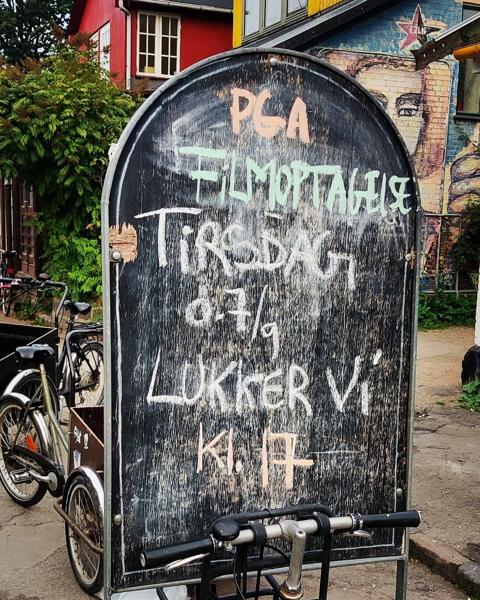 PGA
FILMOPTAGELSE
TiRSDAG
d.7/9
LUKKER Vi
Kl. 17